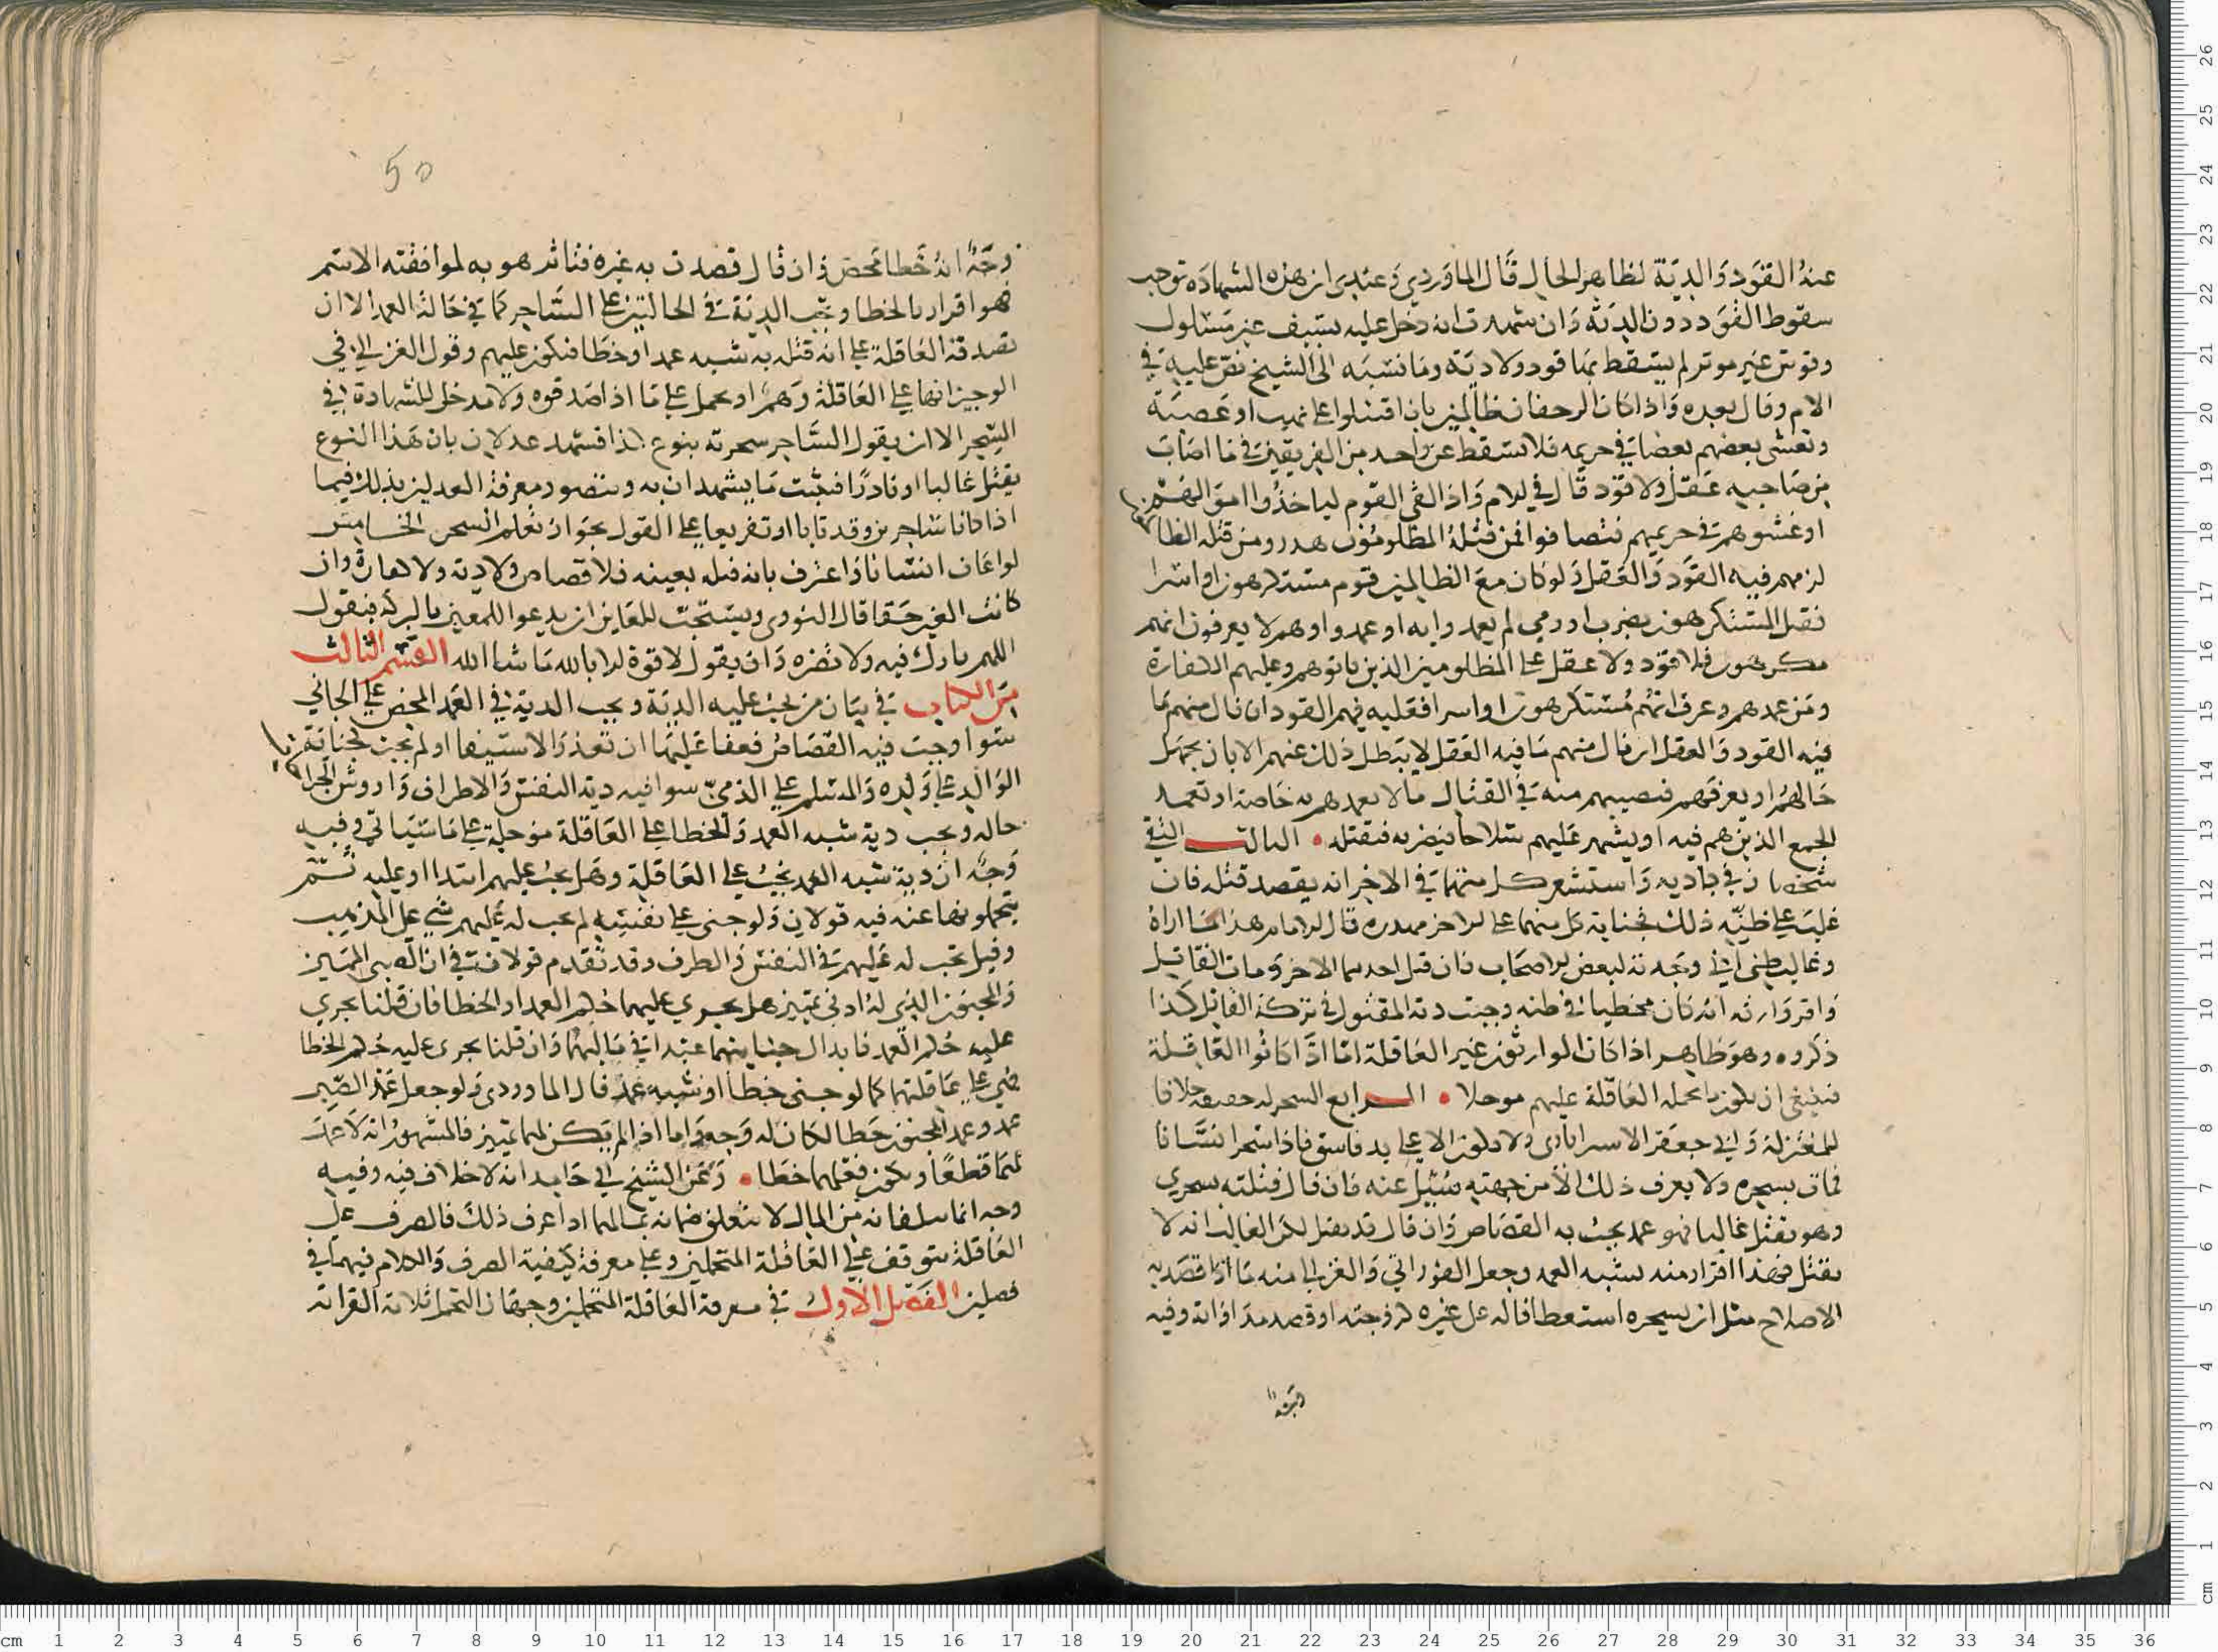 عنه القود والدية لظاهر الحال قال الماوردي وعندي ان هذه الشهادة توجب
سقوط القود دون الدية وان شهدت انه دخل عليه بسيف غير مسلول
وقوس غير موتر لم يسقط بها قود ولا دية وما نسبه الى الشيخ نص عليه في
الام وقال بعده واذا كان الرحفان ظالمين بان اقتتلوا على نهب او عصبية
وتغشى بعضهم بعضا في حريمه فلا تسقط عن واحد من الفريقين في ما اصاب
من صاحبه عقل ولا قود قال في الام واذا لقي القوم لياخذوا اموالهم
او غشوهم في حريمهم فتصافوا فمن قتله المظلومون هدر ومن قتله الظالم
لزمهم فيه القود والعقل ولو كان مع الظالمين قوم مستكرهون او اسرا
فقتل المستكرهون بضرب او رمي لم يعمدوا به او عمدوا وهم لا يعرفون انهم
مكرهون فلا قود ولا عقل على المظلومين الذين نالوهم وعليهم الكفارة
ومن عمدهم وعرف انهم مستكرهون او اسرا فعليه فيهم القود ان نال منهم ما
فيه القود والعقل ان نال منهم ما فيه العقل لا يبطل ذلك عنهم الا بان يجهل
حالهم او يعرفهم فيصيبهم منه في القتال ما لا يعمدهم به خاصة او تعمد
الجمع الذين هم فيه او يشهر عليهم سلاحا فيضربه فيقتله الثالث التقي
شخصان في بادية واستشعر كل منهما في الاخر انه يقصد قتله فان
غلب على ظنه ذلك فجناية كل منهما على الاخر مهدرة قال الامام هذا ما اراه
وغالب ظني اني وجدته لبعض الاصحاب فان قتل احدهما الاخر ومات القاتل
واقر وارثه انه كان مخطيا في ظنه وجبت دية المقتول في تركة القاتل كذا
ذكروه وهو ظاهر اذا كان الوارثون غير العاقلة اما اذا كانوا العاقلة
فينبغي ان يكون ما تحمله العاقلة عليهم موجلا الرابع السحر له حقيقة خلافا
للمعتزلة وابي جعفر الاستراباذي ولا يكون الا على يد فاسق فاذا سحر انسانا
فمات بسحره ولا يعرف ذلك الا من جهته سئل عنه فان قال قتلته بسحري
وهو يقتل غالبا فهو عمد يجب به القصاص وان قال قد يقتل لكن الغالب انه لا
يقتل فهذا اقرار منه بشبه العمد وجعل الفوراني والغزالي منه ما اذا قصد به
الاصلاح مثل ان يسحره استعطافا له على غيره كزوجته او قصد مداواته وفيه
وجه انه
وجه انه خطا محض وان قال قصدت به غيره فتاثر هو به لموافقته الاسم
فهو اقرار بالخطا وتجب الدية في الحالتين على الساحر كما في حالة العمد الا ان
تصدقه العاقلة على انه قتله به شبه عمد او خطا فتكون عليهم وقول الغزالي في
الوجيز انها على العاقلة وهم او يحمل على ما اذا صدقوه ولا مدخل للشهادة في
السحر الا ان يقول الساحر سحرته بنوع كذا فشهد عدلان بان هذا النوع
يقتل غالبا او نادرا فيثبت ما يشهدان به ويتصور معرفة العدلين بذلك فيما
اذا كانا ساحرين وقد تابا او تفريعا على القول بجواز تعلم السحر الخامس
لو اعان انسانا واعترف بانه قتله بعينه فلا قصاص ولا دية ولا كفارة وان
كانت العين حقا قال النووي ويستحب للعاين ان يدعو للمعين بالبركة فيقول
اللهم بارك فيه ولا تضره وان يقول لا قوة الا بالله ما شا الله القسم الثالث
من الكتاب في بيان من يجب عليه الدية وتجب الدية في العمد المحض على الجاني
سوا وجب فيه القصاص فعفا عنها ان تعذر الاستيفا او لم يجب كجناية
الوالد على ولده والمسلم على الذمي سوا فيه دية النفس والاطراف واروش الجراح
حاله وتجب دية شبه العمد والخطا على العاقلة موجلة على ما سياتي وفيه
وجه ان دية شبه العمد تجب على العاقلة وهل تجب عليهم ابتدا او عليه ثم
يتحملونها عنه فيه قولان ولو جنى على نفسه لم تجب له عليهم شي على المذهب
وقيل تجب له عليهم في النفس والطرف وقد تقدم قولان في ان الصبي المميز
والمجنون الذي له ادنى تمييز هل يجري عليهما حكم العمد او الخطا فان قلنا يجري
عليه حكم العمد فابدال جنايتهما عمدا في مالهما وان قلنا يجري عليه حكم الخطا
فهي على عاقلتهما كما لو جنى خطا او شبه عمد قال الماوردي ولو جعل عمد الصبي
عمد وعمد المجنون خطا لكان له وجه واما اذا لم يكن لهما تمييز فالمشهور انه لا عمد
لهما قطعا ويكون فعلهما خطا وعن الشيخ ابي حامد انه لا خلاف فيه وفيه
وجه انما يتلفانه من المال لا يتعلق ضمانه بمالهما اذا عرف ذلك فالصرف على
العاقلة يتوقف على العاقلة المتحملين وعلى معرفة كيفية الصرف والكلام فيهما في
فصلين الفصل الاول في معرفة العاقلة المتحملين وجهات التحمل ثلاثة القرابة
50